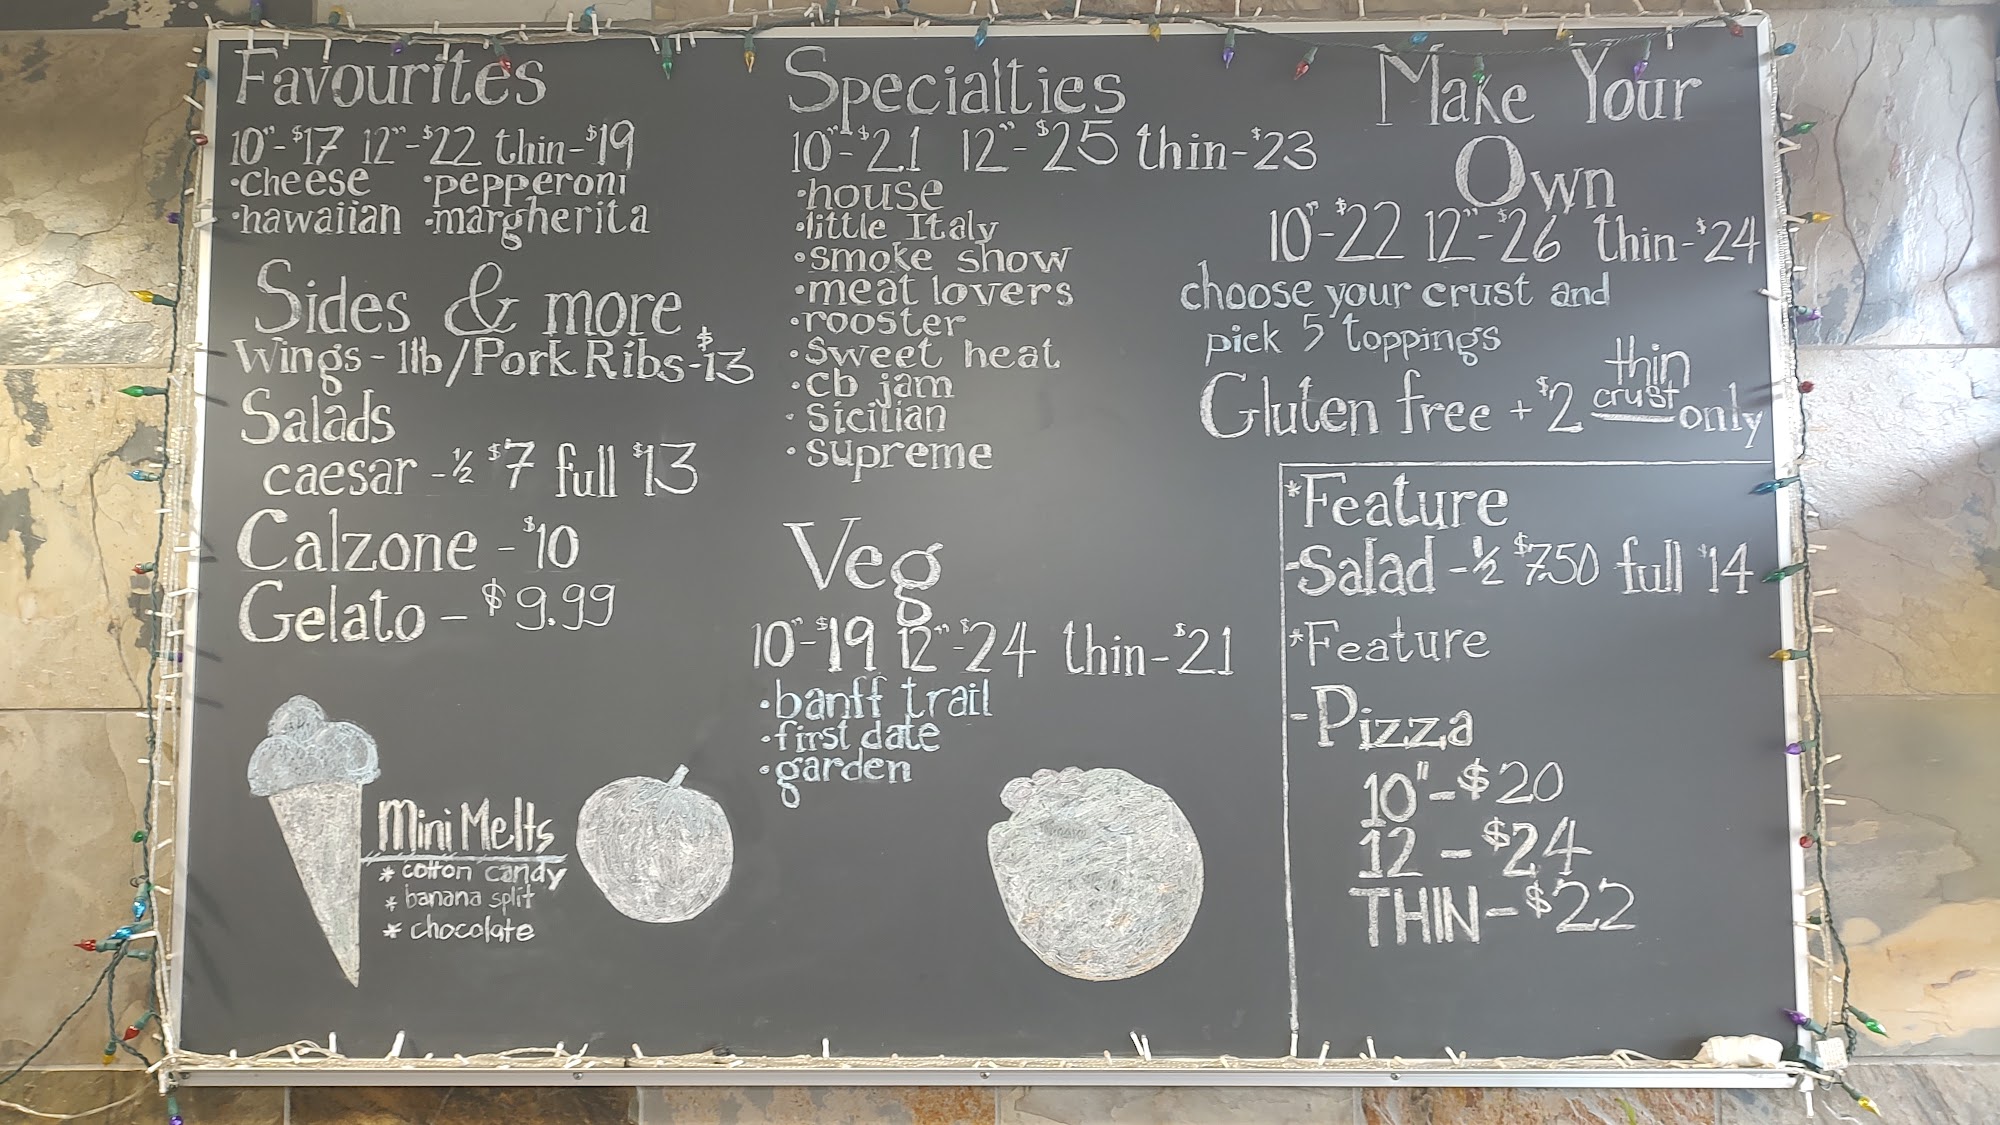 Favourites
10"-$17 12"-$22 thin-$19
•cheese •pepperoni
•hawaiian •margherita
Sides & more
Wings - 1lb/Pork Ribs-$13
Salads
caesar -½ $7 full $13
Calzone - $10
Gelato - $9.99
Mini Melts
* cotton candy
* banana split
* chocolate
Specialties
10"-$21 12"-$25 thin-$23
•house
•little Italy
•smoke show
•meat lovers
•rooster
•sweet heat
•cb jam
•sicilian
•supreme
Veg
10"-$19 12"-$24 thin-$21
•banff trail
•first date
•garden
Make Your
Own
10"-$22 12"-$26 thin-$24
choose your crust and
pick 5 toppings
Gluten free + $2 thin crust only
*Feature
-Salad -½ $7.50 full $14
*Feature
-Pizza
10"-$20
12 - $24
THIN - $22